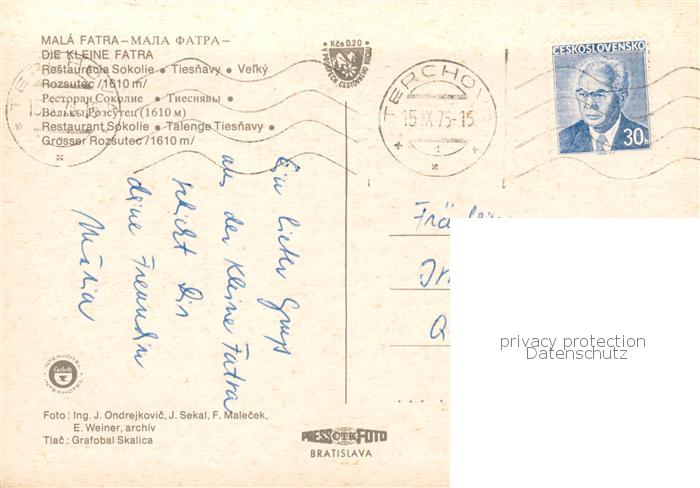 MALÁ FATRA – МАЛА ФАТРА –
DIE KLEINE FATRA
Reštaurácia Sokolie • Tiesňavy • Veľký
Rozsutec /1610 m/
Ресторан Соколие • Тиеснявы •
Вельки Розсутец (1610 м)
Restaurant Sokolie • Talenge Tiesňavy •
Grösser Rozsutec /1610 m/
Kčs 0,20
TERCHOVÁ
15.IX.75-15
ČESKOSLOVENSKO
30h
Ein lieber Gruss
aus der Kleine Fatra
schickt Dir
deine Freundin
Mária
INTERHOTEL
INTERHOTEL
Foto: Ing. J. Ondrejkovič, J. Sekal, F. Maleček,
E. Weiner, archív
Tlač: Grafobal Skalica
PRESSFOTO
BRATISLAVA
privacy protection
Datenschutz